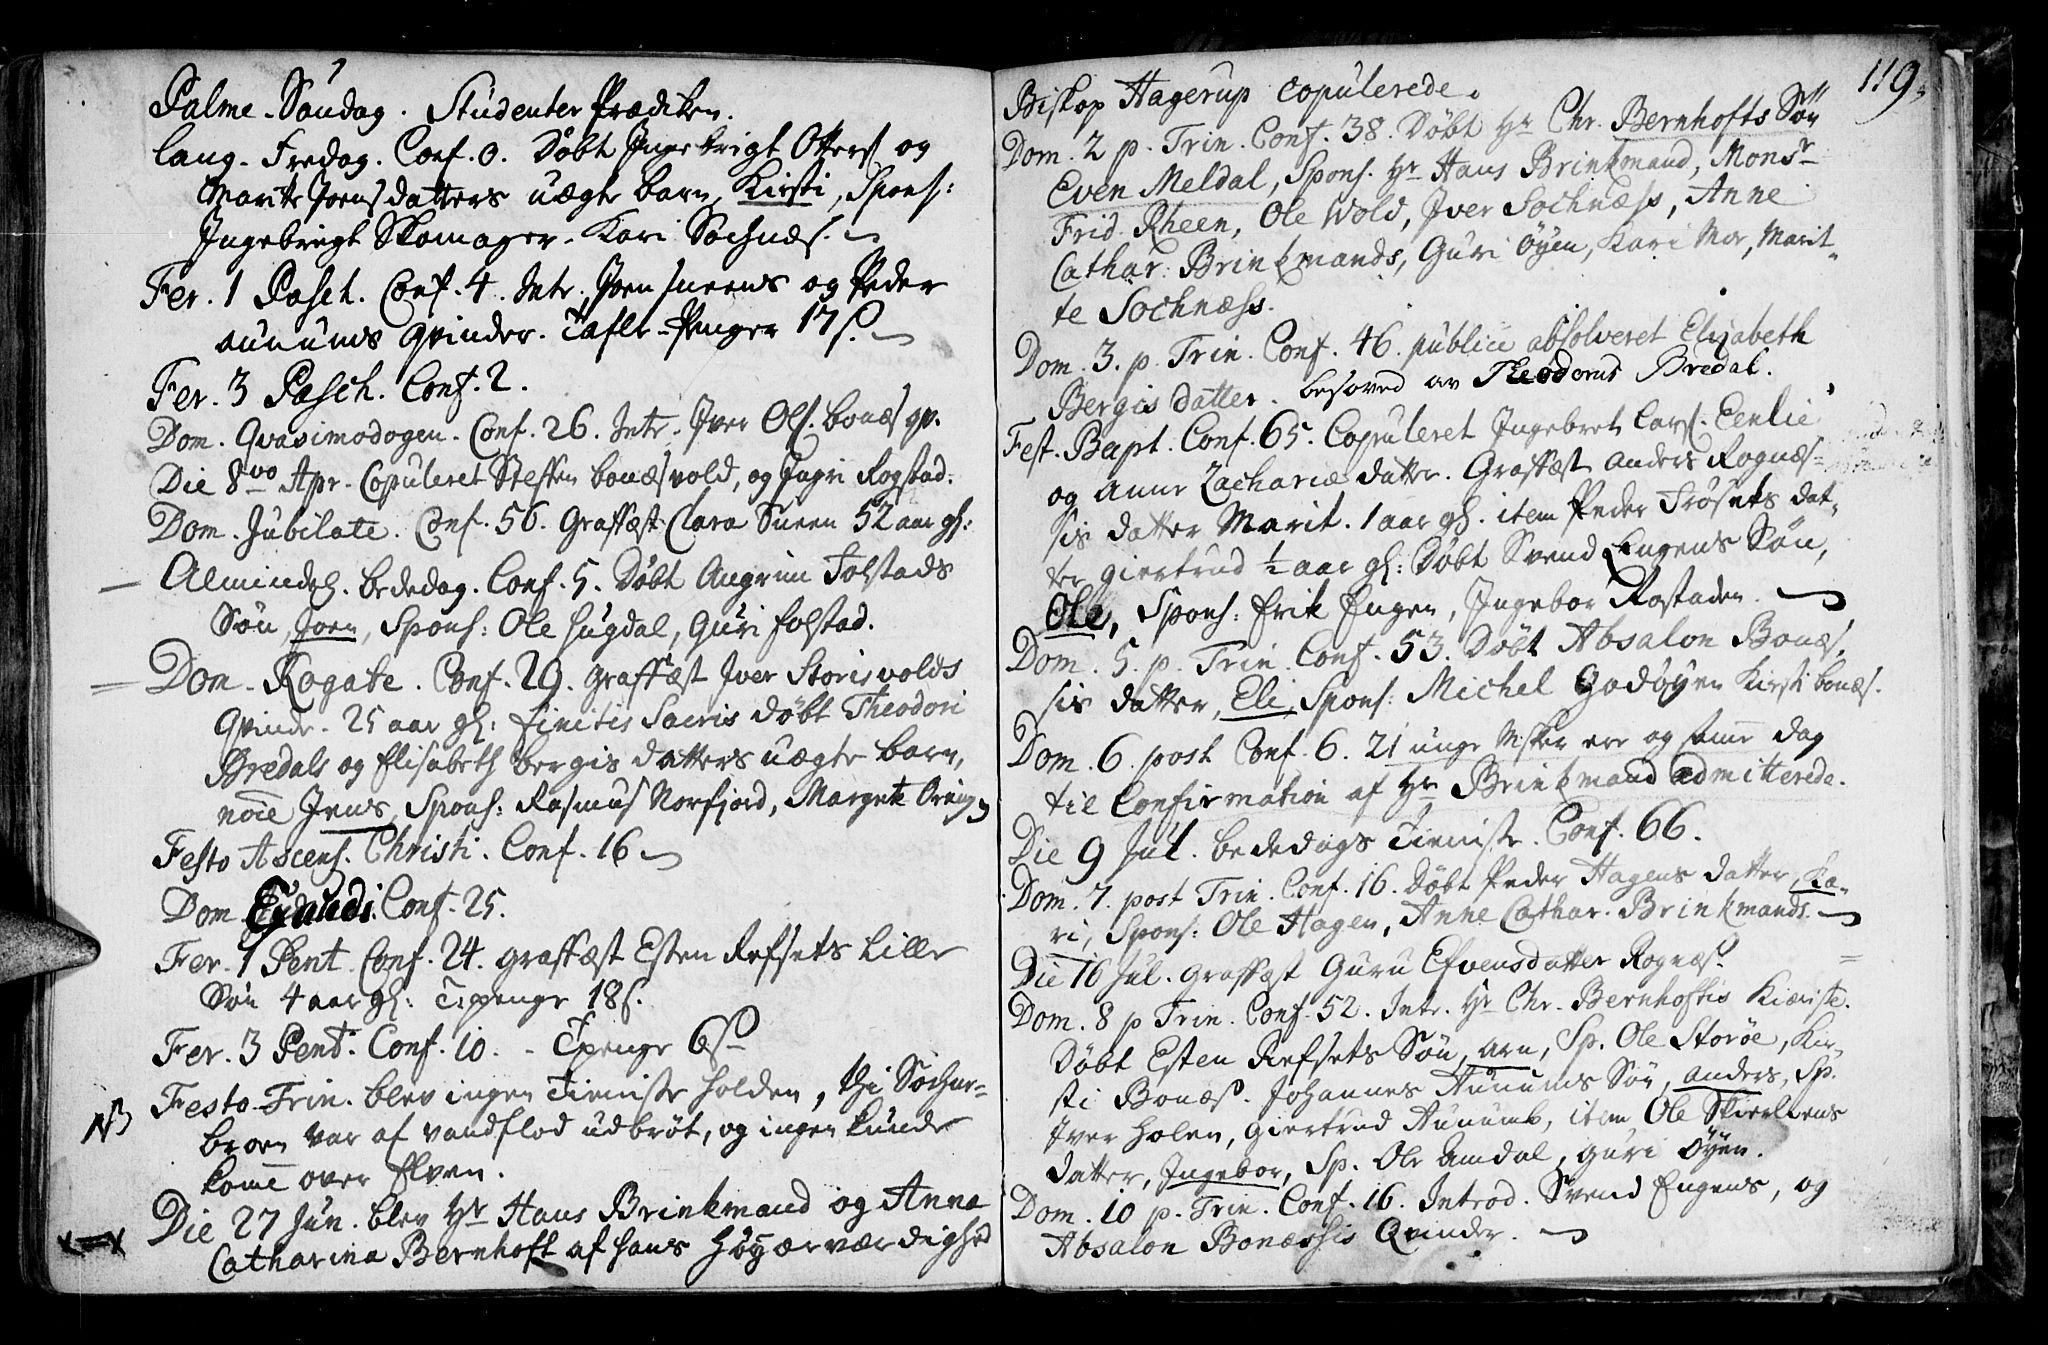 Palme-Søndag. Studenter Prædiken.
lang-Fredag. Conf. 0. Døbt Ingebrigt Otters. og
Marite Joensdatters uægte barn, Kirsti, Spons:
Ingebrigt Skomager. Kari Sochnæs.
Fer. 1 Pasch. Conf. 4. Intr. Joen sneens og Peder
aunums qvinder. Tafle-Penger 17 s.
Fer. 3 Pasch. Conf. 2.
Dom. Qvasimodogen. Conf. 26. Intr. Iver Ols. bonæs qv.
Die 8vo Apr. Copuleret Steffen bonæsvold, og Ingri Rogstad.
Dom. Jubilate. Conf. 56. Graffæst Clara Sneen 52 aar gl:
Almindel. bededag. Conf. 5. Døbt Angrim Folstads
Søn, Joen, Spons: Ole hugdal, Guri folstad.
Dom. Rogate. Conf. 29. Graffæst Iver Storisvolds
Qvinde. 25 aar gl: finitis Sacris døbt Theodori
Bredals og Elisabeth bergis datters uægte barn,
noie Jens, Spons: Rasmus Norfjord, Margrete
Festo Ascens. Christi. Conf. 16
Dom. Exaudi. Conf. 25.
Fer. 1 Pent. Conf. 24. graffæst Esten Refsets lille
Søn 4 aar gl: Tpenge 18 s.
Fer. 3 Pent. Conf. 10. - Tpenge 6 s
Festo Trin. blev ingen Tieniste holden, thi Sochne-
NB broen var af vandflod udbrøt, og ingen kunde
kome over Elven.
Die 27 Jun. blev Hr Hans Brinkmand og Anna
Catharina Bernhoft af hans Høyærværdighed
119.
Biskop Hagerup copulerede.
Dom. 2 p. Trin. Conf. 38. Døbt Hr Chr. Bernhofts Søn
Even Meldal, Spons. Hr Hans Brinkmand, Monsr
Frid. Rheen, Ole Wold, Iver Sochnæss, Anne
Cathar: Brinkmands, Guri Øyen, Kari Mor, Marit-
te Sochnæss.
Dom. 3. p. Trin. Conf. 46. publicè absolveret Elizabeth
Bergis datter. besoved av Theodorus Bredal.
Fest. Bapt. Conf. 65. Copuleret Ingebret Lars. Eenlie
og Anne Zachariæ datter. Graffæst Anders Rognæs-
sis datter Marit. 1 aar gl. item Peder Frøsets dat-
ter giertrud ½ aar gl: Døbt Svend Engens Søn,
Ole, Spons: Erik Engen, Ingebor Rostaden.
Dom. 5. p. Trin. Conf. 53. Døbt Absalon Bonæs-
sis datter, Eli, Spons: Michel Godøyen Kirsti bonæs.
Dom. 6. post Conf. 6. 21 unge Nisker ere og same dag
til Confirmation af Hr Brinkmand admitterede.
Die 9 Jul. bededags Tieniste. Conf. 66.
Dom. 7. post Trin. Conf. 16. Døbt Peder Hagens datter, Ka-
ri, Spons: Ole Hagen, Anne Cathar. Brinkmands.
Die 16 Jul. graffæst Guru Efvensdatter Rognæs.
Dom. 8 p Trin. Conf. 52. Intr. Hr Chr. Bernhoftis Kiæriste.
Døbt Esten Refsets Søn, arn, Sp. Ole Storøe, Kir-
sti Bonæs. Johannes Aunums Søn, anders, Sp.
Iver holen, Giertrud Aunumb, item Ole Skierliens
datter, Ingebor, Sp. Ole Amdal, guri Øyen.
Dom. 10 p. Trin. Conf. 16. Introd. Svend Engens, og
Absalon Bonæssis Qvinder.